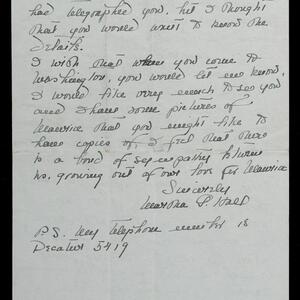 had telegraphed you, but I thought
that you would want to know the
details.
I wish that when you come to
Washington, you would let me know.
I would like very much to see you
and I have some pictures of
Maurice that you might like to
have copies of. I feel that there
is a bond of sympathy between
us, growing out of our love for Maurice
Sincerely
Martha P. Hall
P.S. My telephone number is
Decatur 5419